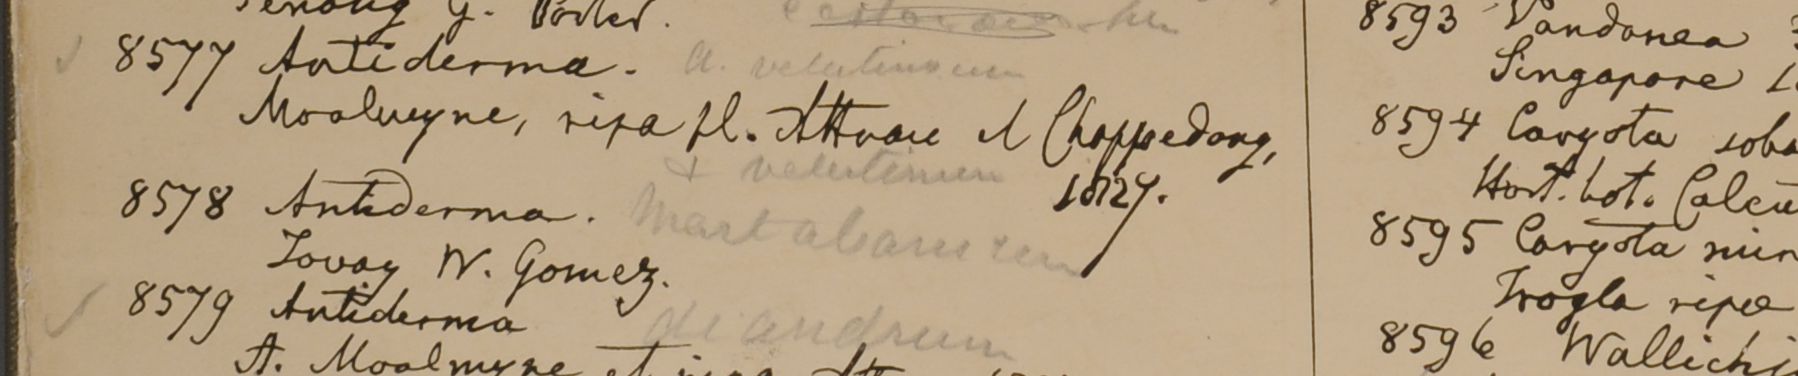 Penang G. Porter.
8577 Antiderma. A. velutinosum
Moalmyne, ripa fl. Attran et Chappedong,
1827.
& velutinum
8578 Antiderma. Martabanicum
Tovay W. Gomez.
8579 Antiderma diandrum
A. Moalmyne et ripa
8593 Vandanea
Singapore
8594 Caryota
Hort. bot. Calcu
8595 Caryota
Trogla ripa
8596 Wallichi